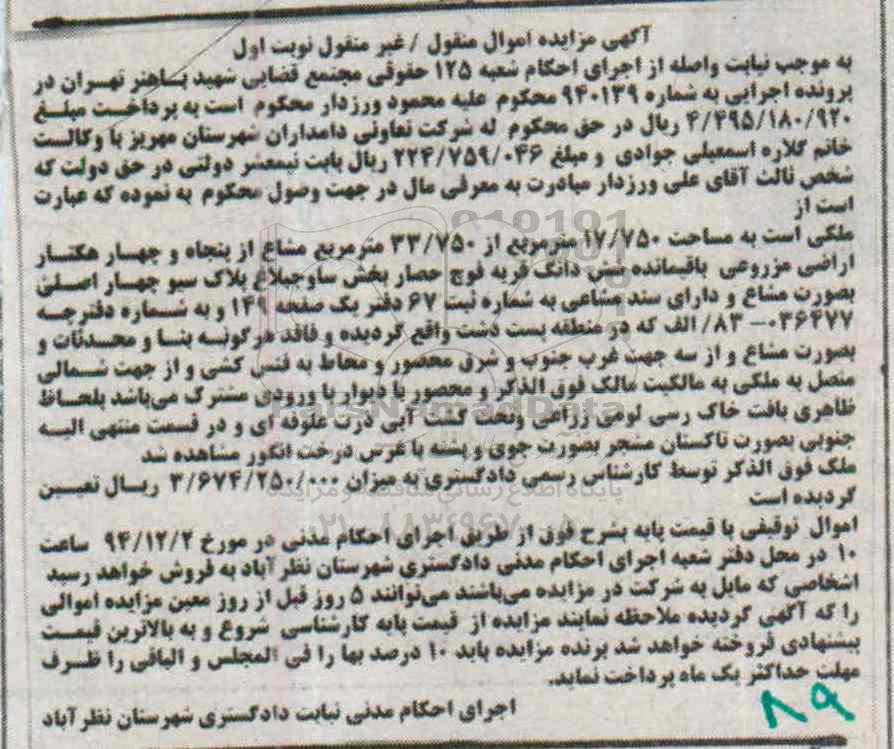 آگهی مزایده اموال منقول / غیر منقول نوبت اول
به موجب نیابت واصله از اجرای احکام شعبه ۱۲۵ حقوقی مجتمع قضایی شهید باهنر تهران در
پرونده اجرایی به شماره ۹۴۰۱۳۹ محکوم علیه محمود ورزدار محکوم است به پرداخت مبلغ
۴/۴۹۵/۱۸۰/۹۲۰ ریال در حق محکوم له شرکت تعاونی دامداران شهرستان مهریز با وکالت
خانم گلاره اسمعیلی جوادی و مبلغ ۲۲۴/۷۵۹/۰۴۶ ریال بابت نیمعشر دولتی در حق دولت که
شخص ثالث آقای علی ورزدار مبادرت به معرفی مال در جهت وصول محکوم به نموده که عبارت
است از
ملکی است به مساحت ۱۷/۷۵۰ مترمربع از ۳۳/۷۵۰ مترمربع مشاع از پنجاه و چهار هکتار
اراضی مزروعی باقیمانده شش دانگ قریه فوج حصار بخش ساوجبلاغ پلاک سیو چهار اصلی
بصورت مشاع و دارای سند مشاعی به شماره ثبت ۶۷ دفتر یک صفحه ۱۴۹ و به شماره دفترچه
۰۳۶۴۷۷ – ۸۳/ الف که در منطقه پست دشت واقع گردیده و فاقد هرگونه بنا و محدثات و
بصورت مشاع و از سه جهت غرب جنوب و شرق محصور و محاط به فنس کشی و از جهت شمالی
متصل به ملکی به مالکیت مالک فوق الذکر و محصور با دیوار با ورودی مشترک می‌باشد بلحاظ
ظاهری بافت خاک رسی لومی زراعی وتحت کشت آبی ذرت علوفه ای و در قسمت منتهی الیه
جنوبی بصورت تاکستان مشجر بصورت جوی و پشته با غرس درخت انگور مشاهده شد
ملک فوق الذکر توسط کارشناس رسمی دادگستری به میزان ۳/۶۷۴/۲۵۰/۰۰۰ ریال تعیین
گردیده است
اموال توقیفی با قیمت پایه بشرح فوق از طریق اجرای احکام مدنی در مورخ ۹۴/۱۲/۲ ساعت
۱۰ در محل دفتر شعبه اجرای احکام مدنی دادگستری شهرستان نظر آباد به فروش خواهد رسید
اشخاصی که مایل به شرکت در مزایده می‌باشند می‌توانند ۵ روز قبل از روز معین مزایده اموالی
را که آگهی گردیده ملاحظه نمایند مزایده از قیمت پایه کارشناسی شروع و به بالاترین قیمت
پیشنهادی فروخته خواهد شد برنده مزایده باید ۱۰ درصد بها را فی المجلس و الباقی را ظرف
مهلت حداکثر یک ماه پرداخت نماید.
اجرای احکام مدنی نیابت دادگستری شهرستان نظر آباد
۸۹
ParsNamadData
پایگاه اطلاع رسانی مناقصه و مزایده